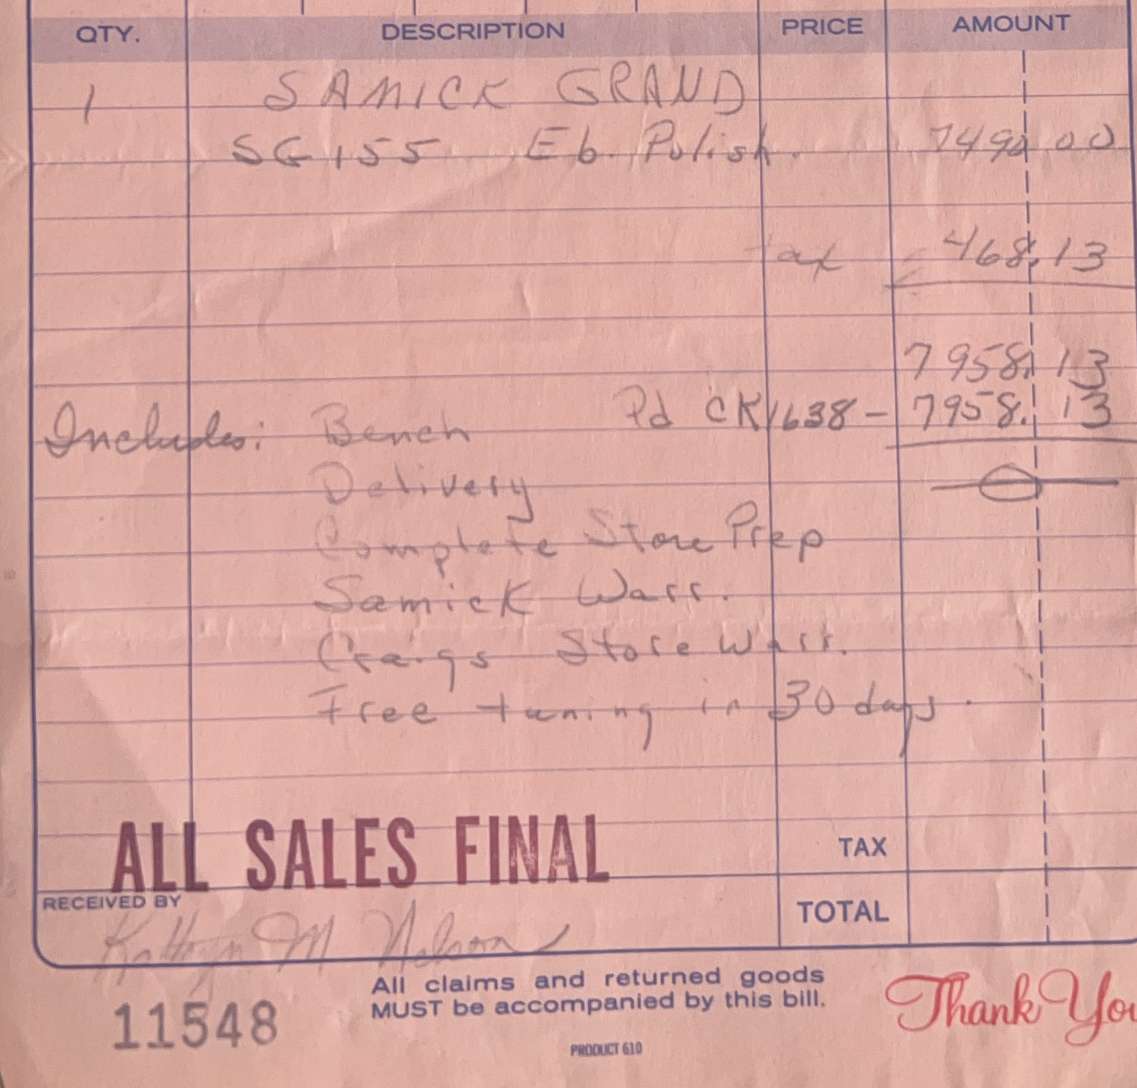 QTY. DESCRIPTION PRICE AMOUNT
1 SAMICK GRAND
SG 155 Eb. Polish. 7490.00
tax 468.13
7958.13
Includes: Bench Pd CK 1638 - 7958.13
Delivery
Complete Store Prep
Samick Warr.
Craigs Store Warr.
Free tuning in 30 days.
ALL SALES FINAL
TAX
RECEIVED BY
TOTAL
Kathryn M Nelson
All claims and returned goods
MUST be accompanied by this bill.
Thank You
11548
PRODUCT 610